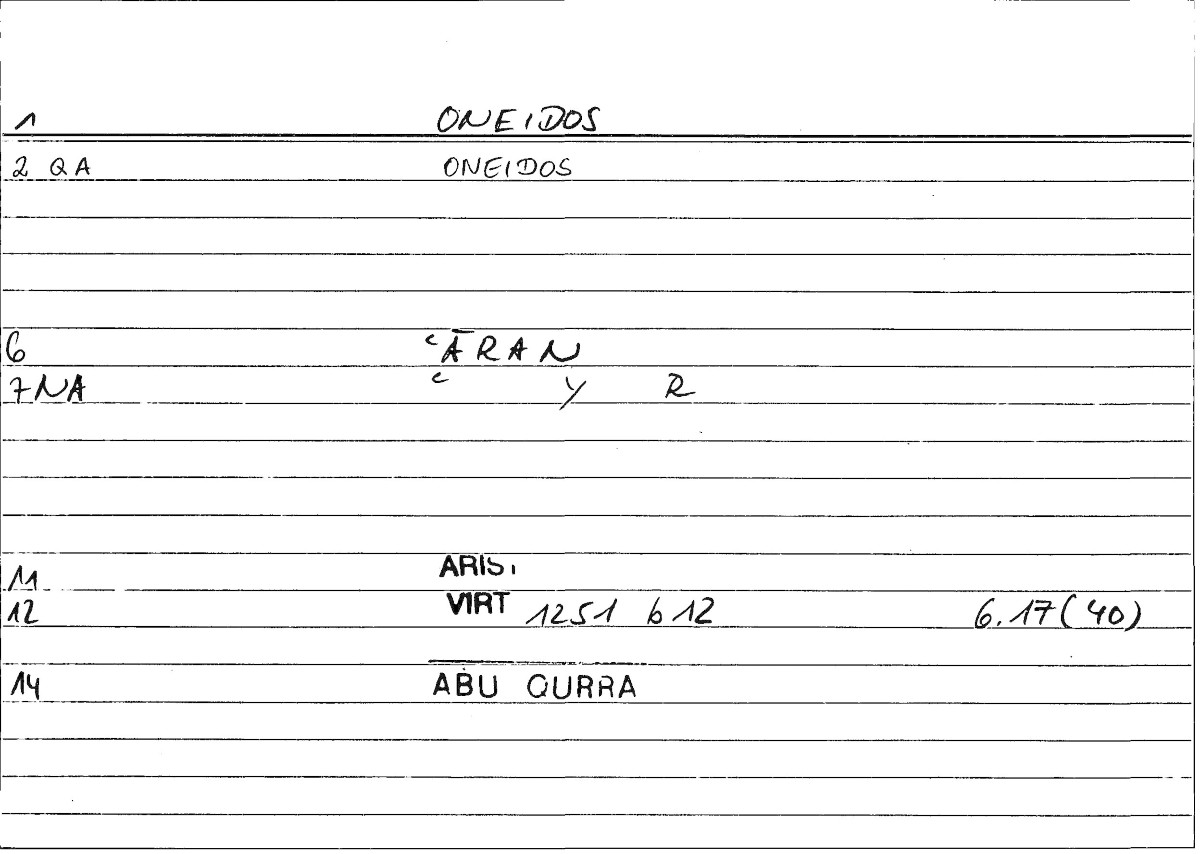 1 ONEIDOS
2 QA ONEIDOS
6 ʿĀRAN
7 NA ʿ Y R
11 ARIS.
12 VIRT 1251 b 12 6.17(40)
14 ABU QURRA